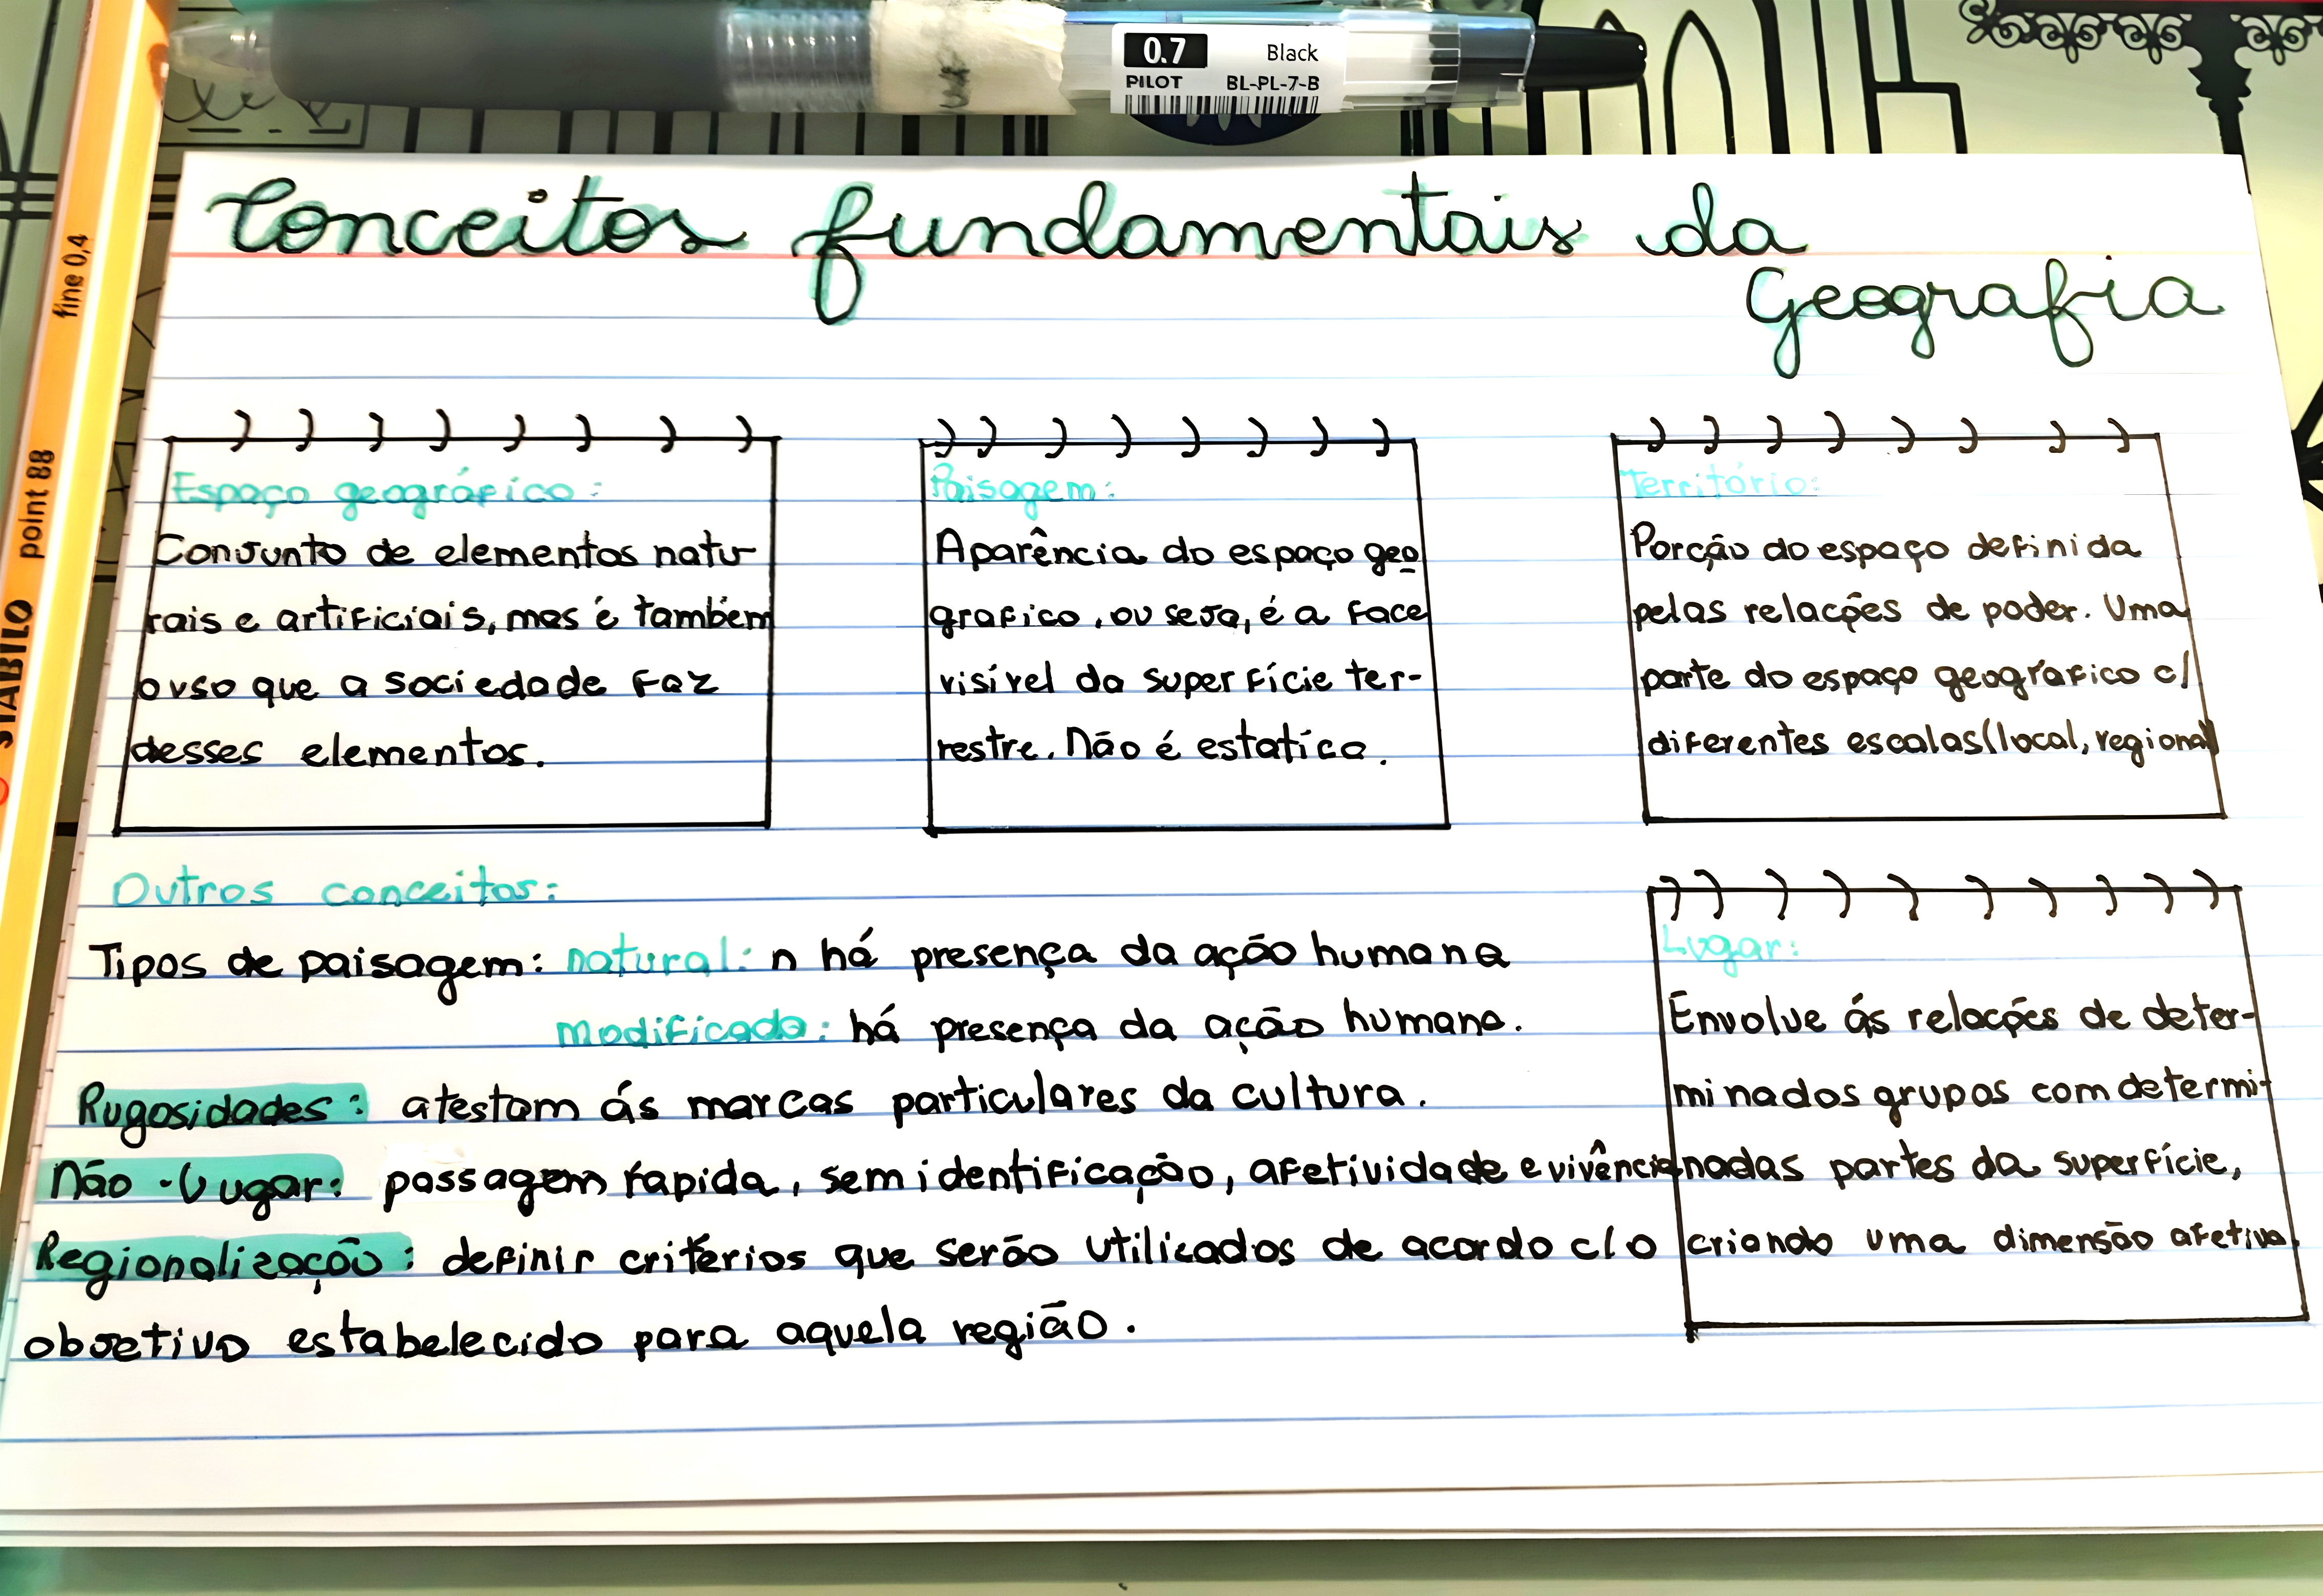 0.7 Black
PILOT BL-PL-7-B
STABILO point 88 fine 0,4
Conceitos fundamentais da
Geografia
Espaço geográfico:
Conjunto de elementos natu-
rais e artificiais, mas é também
o uso que a sociedade faz
desses elementos.
Paisagem:
Aparência do espaço geo
grafico, ou seja, é a face
visível da superfície ter-
restre. Não é estatíca.
Território:
Porção do espaço definida
pelas relações de poder. Uma
parte do espaço geográfico c/
diferentes escalas (local, regional)
Outros conceitos:
Tipos de paisagem: natural: n há presença da ação humana
modificada: há presença da ação humana.
Rugosidades: atestam ás marcas particulares da cultura.
Não-lugar: passagem rápida, sem identificação, afetividade e vivência
Regionalização: definir critérios que serão utilizados de acordo c/ o
objetivo estabelecido para aquela região.
Lugar:
Envolve ás relações de deter-
minados grupos com determi-
nadas partes da superfície,
criando uma dimensão afetiva.